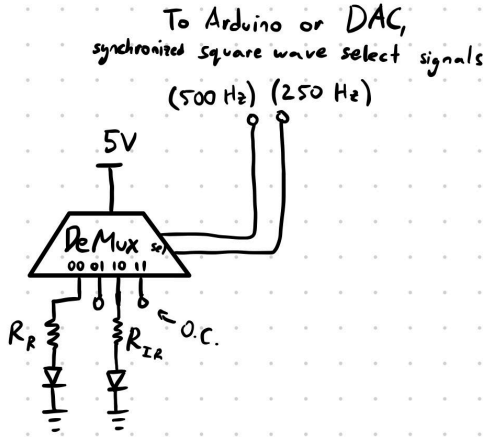 To Arduino or DAC,
synchronized square wave select signals
(500 Hz) (250 Hz)
5V
DeMux sel
00 01 10 11
O.C.
R_R
R_IR